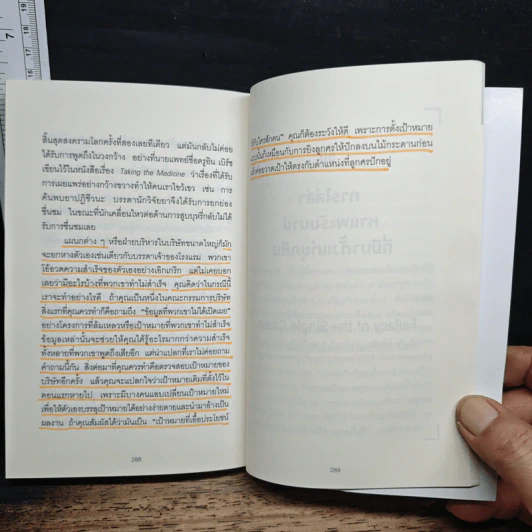 สิ้นสุดสงครามโลกครั้งที่สองเลยทีเดียว แต่มันกลับไม่ค่อย
ได้รับการพูดถึงในวงกว้าง อย่างที่นายแพทย์ชื่อดรูอิน เบิร์ช
เขียนไว้ในหนังสือเรื่อง Taking the Medicine ว่าเรื่องที่ได้รับ
การเผยแพร่อย่างกว้างขวางทำให้คนเราไขว้เขว เช่น การ
ค้นพบยาปฏิชีวนะ บรรดานักวิจัยยาจึงได้รับการยกย่อง
ชื่นชม ในขณะที่นักเคลื่อนไหวต่อต้านการสูบบุหรี่กลับไม่ได้
รับการชื่นชมเลย
แผนกต่าง ๆ หรือฝ่ายบริหารในบริษัทขนาดใหญ่ก็มัก
จะยกหางตัวเองเช่นเดียวกับบรรดาเจ้าของโรงแรม พวกเขา
โอ้อวดความสำเร็จของตัวเองอย่างเอิกเกริก แต่ไม่เคยบอก
เลยว่ามีอะไรบ้างที่พวกเขาทำไม่สำเร็จ คุณคิดว่าในกรณีนี้
เราจะทำอย่างไรดี ถ้าคุณเป็นหนึ่งในคณะกรรมการบริษัท
สิ่งแรกที่คุณควรทำก็คือถามถึง "ข้อมูลที่พวกเขาไม่ได้เปิดเผย"
อย่างโครงการที่ล้มเหลวหรือเป้าหมายที่พวกเขาทำไม่สำเร็จ
ข้อมูลเหล่านั้นจะช่วยให้คุณได้รู้อะไรมากกว่าความสำเร็จ
ทั้งหลายที่พวกเขาพูดถึงเสียอีก แต่น่าแปลกที่เราไม่ค่อยถาม
คำถามนี้กัน สิ่งต่อมาที่คุณควรทำคือตรวจสอบเป้าหมายของ
บริษัทอีกครั้ง แล้วคุณจะแปลกใจว่าเป้าหมายเดิมที่ตั้งไว้ใน
ตอนแรกหายไป เพราะมีบางคนแอบเปลี่ยนเป้าหมายใหม่
เพื่อให้ตัวเองบรรลุเป้าหมายได้อย่างง่ายดายและนำมาอ้างเป็น
ผลงาน ถ้าคุณสัมผัสได้ว่ามันเป็น "เป้าหมายที่เอื้อประโยชน์
288
คุณก็ต้องระวังให้ดี เพราะการตั้งเป้าหมาย
เหมือนกับการยิงลูกศรให้ปักลงบนไม้กระดานก่อน
วาดเป้าให้ตรงกับตำแหน่งที่ลูกศรปักอยู่
289